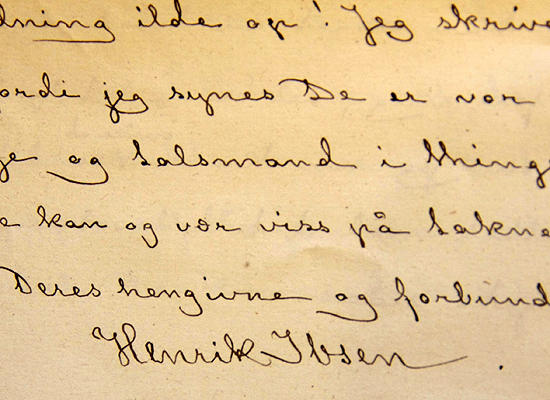 dning ilde op! Jeg skrive
ordi jeg synes De er vor
ge og talsmand i things
e kan og vær viss på takne
Deres hengivne og forbund
Henrik Ibsen.